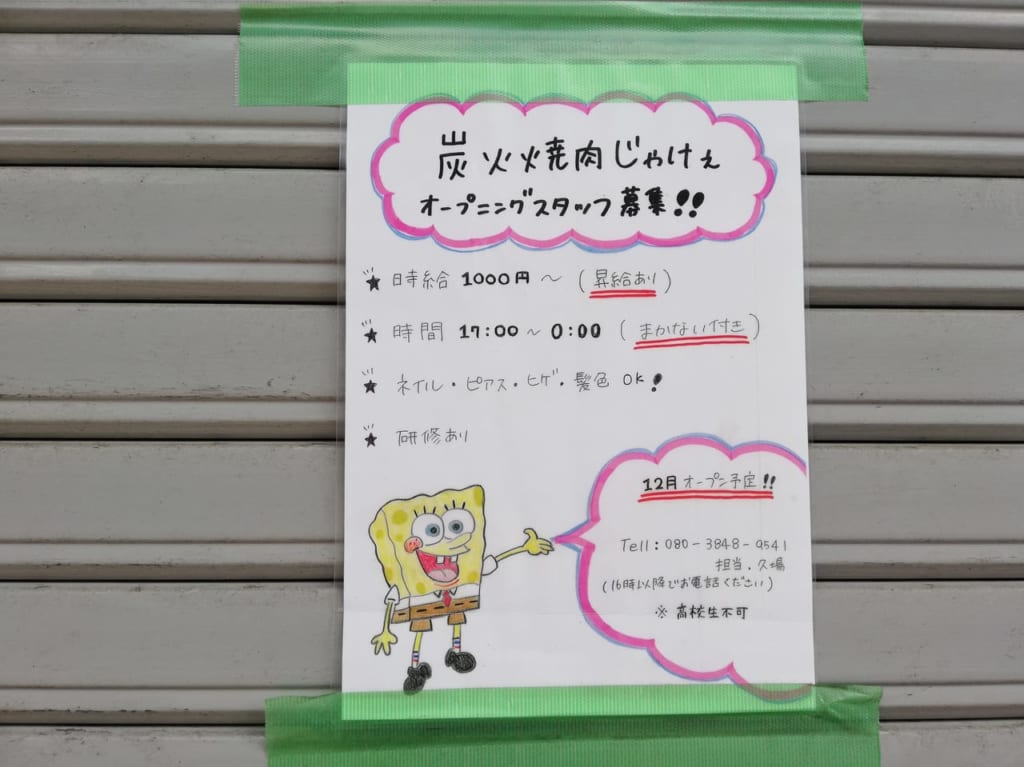 炭火焼肉じゃけぇ
オープニングスタッフ募集!!
★ 時給 1000円 ～ (昇給あり)
★ 時間 17:00 ～ 0:00 (まかない付き)
★ ネイル・ピアス・ヒゲ・髪色 OK!
★ 研修あり
12月オープン予定!!
Tell: 080-3848-9541
担当.久場
(16時以降でお電話ください)
※ 高校生不可